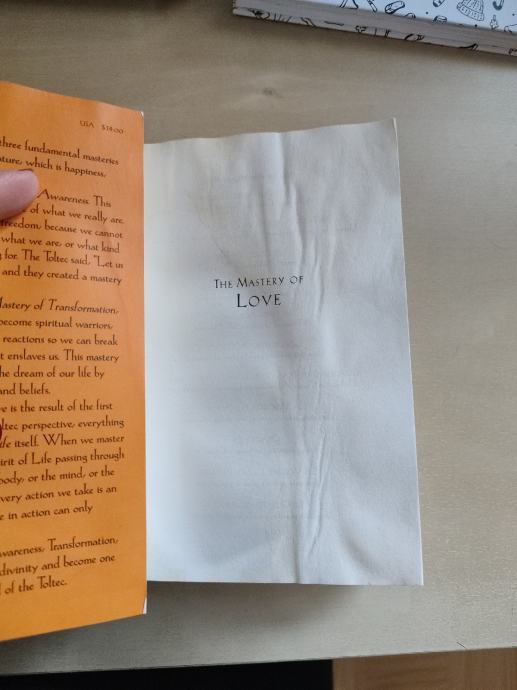 USA $14.00
three fundamental masteries
ature, which is happiness,
Awareness. This
of what we really are.
freedom, because we cannot
what we are, or what kind
for. The Toltec said, "Let us
and they created a mastery
Mastery of Transformation,
become spiritual warriors,
reactions so we can break
t enslaves us. This mastery
he dream of our life by
and beliefs.
e is the result of the first
ltec perspective, everything
ife itself. When we master
irit of Life passing through
body, or the mind, or the
very action we take is an
e in action can only
wareness, Transformation,
divinity and become one
of the Toltec.
THE MASTERY OF
LOVE